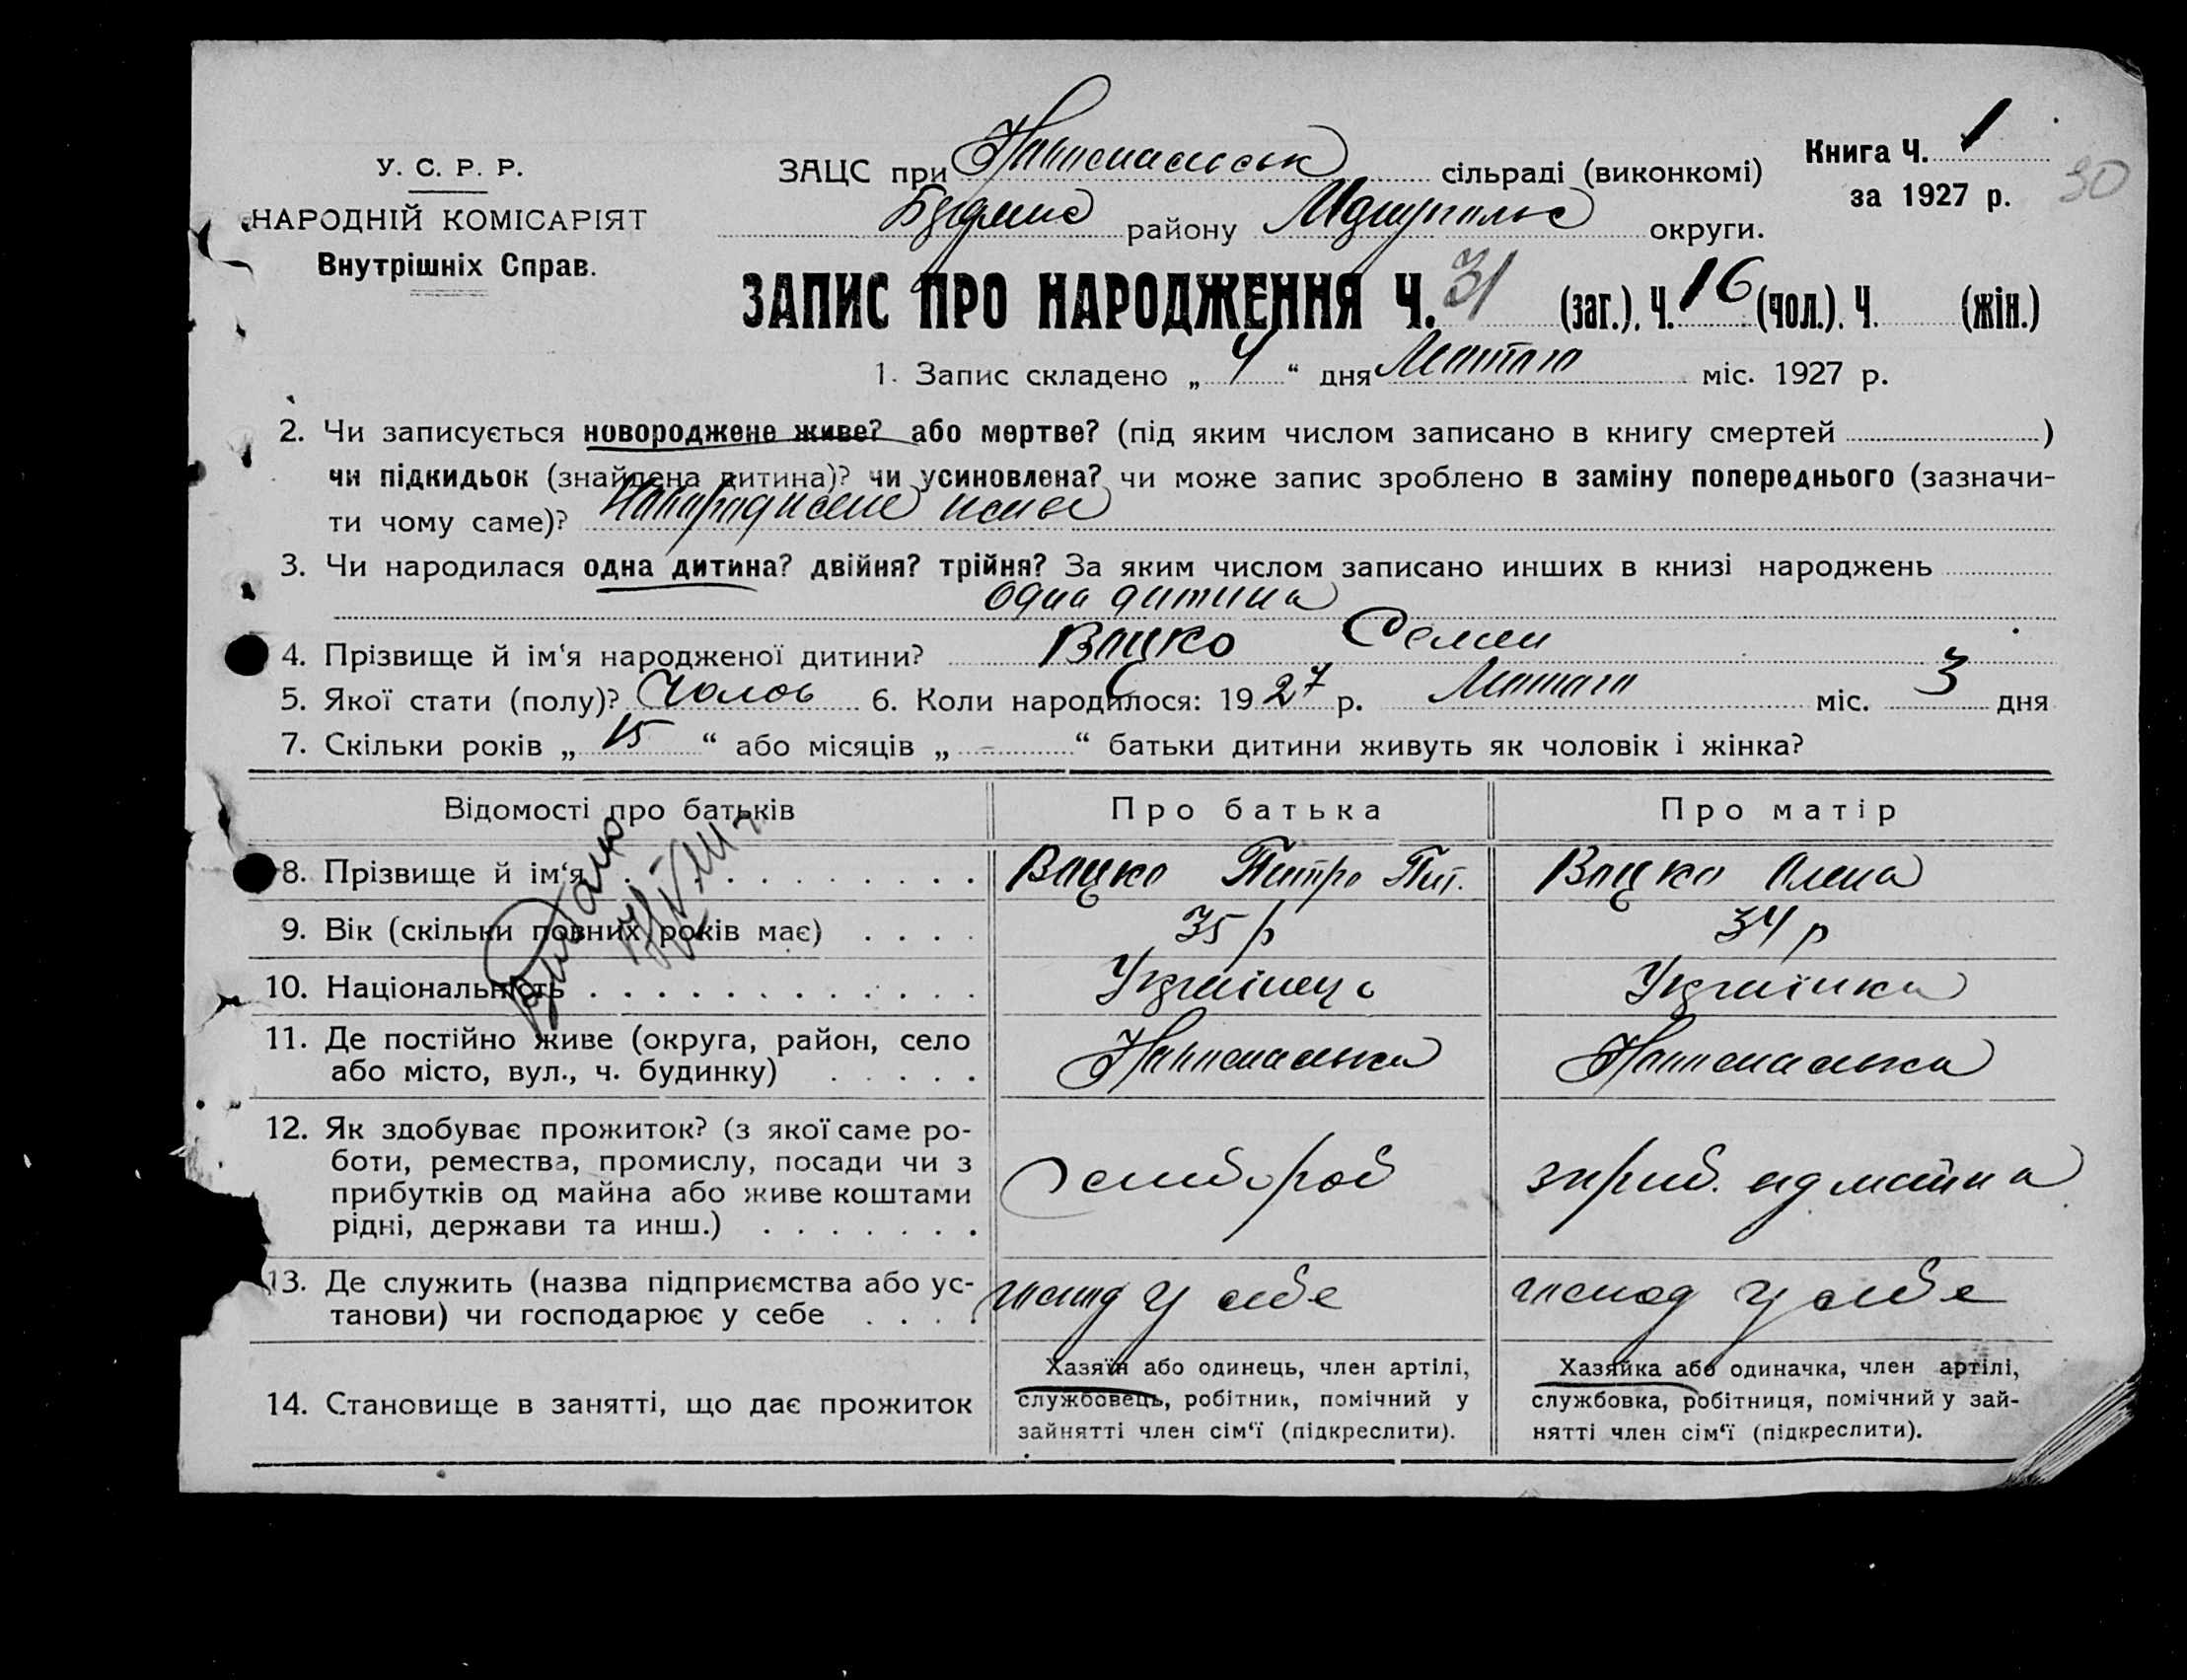 Книга Ч. 1
30
У. С. Р. Р.
ЗАЦС при сільраді (виконкомі)
за 1927 р.
НАРОДНІЙ КОМІСАРІЯТ
району округи.
Внутрішніх Справ.
ЗАПИС ПРО НАРОДЖЕННЯ Ч. 31 (заг.). Ч. 16 (чол.). Ч. (жін.)
1. Запис складено „ 4 “ дня Лютого міс. 1927 р.
2. Чи записується новороджене живе? або мертве? (під яким числом записано в книгу смертей )
чи підкидьок (знайдена дитина)? чи усиновлена? чи може запис зроблено в заміну попереднього (зазначи-
ти чому саме)? живе
3. Чи народилася одна дитина? двійня? трійня? За яким числом записано инших в книзі народжень
Одна дитина
4. Прізвище й ім‘я народженої дитини? Вацко Семен
5. Якої стати (полу)? Чолов 6. Коли народилося: 1927 р. Лютого міс. 3 дня
7. Скільки років „ 15 “ або місяців „ - “ батьки дитини живуть як чоловік і жінка?
Відомості про батьків Про батька Про матір
8. Прізвище й ім‘я Вацко Петро Пит. Вацко Олена
9. Вік (скільки повних років має) 35 р 34 р
10. Національність Українець Українка
11. Де постійно живе (округа, район, село
або місто, вул., ч. будинку)
12. Як здобуває прожиток? (з якої саме ро-
боти, ремества, промислу, посади чи з
прибутків од майна або живе коштами
рідні, держави та инш.)
13. Де служить (назва підприємства або ус-
танови) чи господарює у себе господ у себе господ у себе
14. Становище в занятті, що дає прожиток
Хазяїн або одинець, член артілі,
службовець, робітник, помічний у
зайнятті член сім‘ї (підкреслити).
Хазяйка або одиначка, член артілі,
службовка, робітниця, помічний у зай-
нятті член сім‘ї (підкреслити).